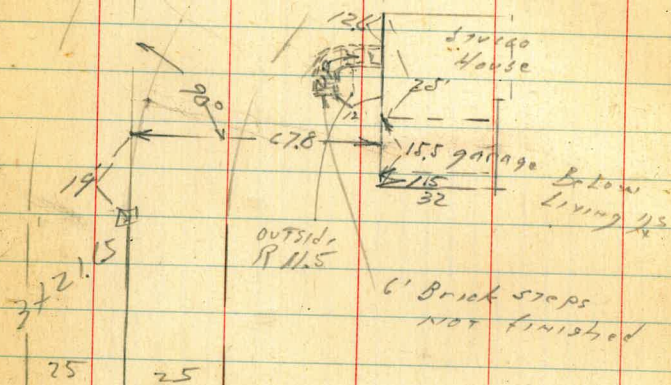 12.
House
28'
90°
12
67.8
15.5 garage
19'
11.5
32
Below
Living
OUTSIDE
R 11.5
3+21.15
6' Brick steps
NOT finished
25 25